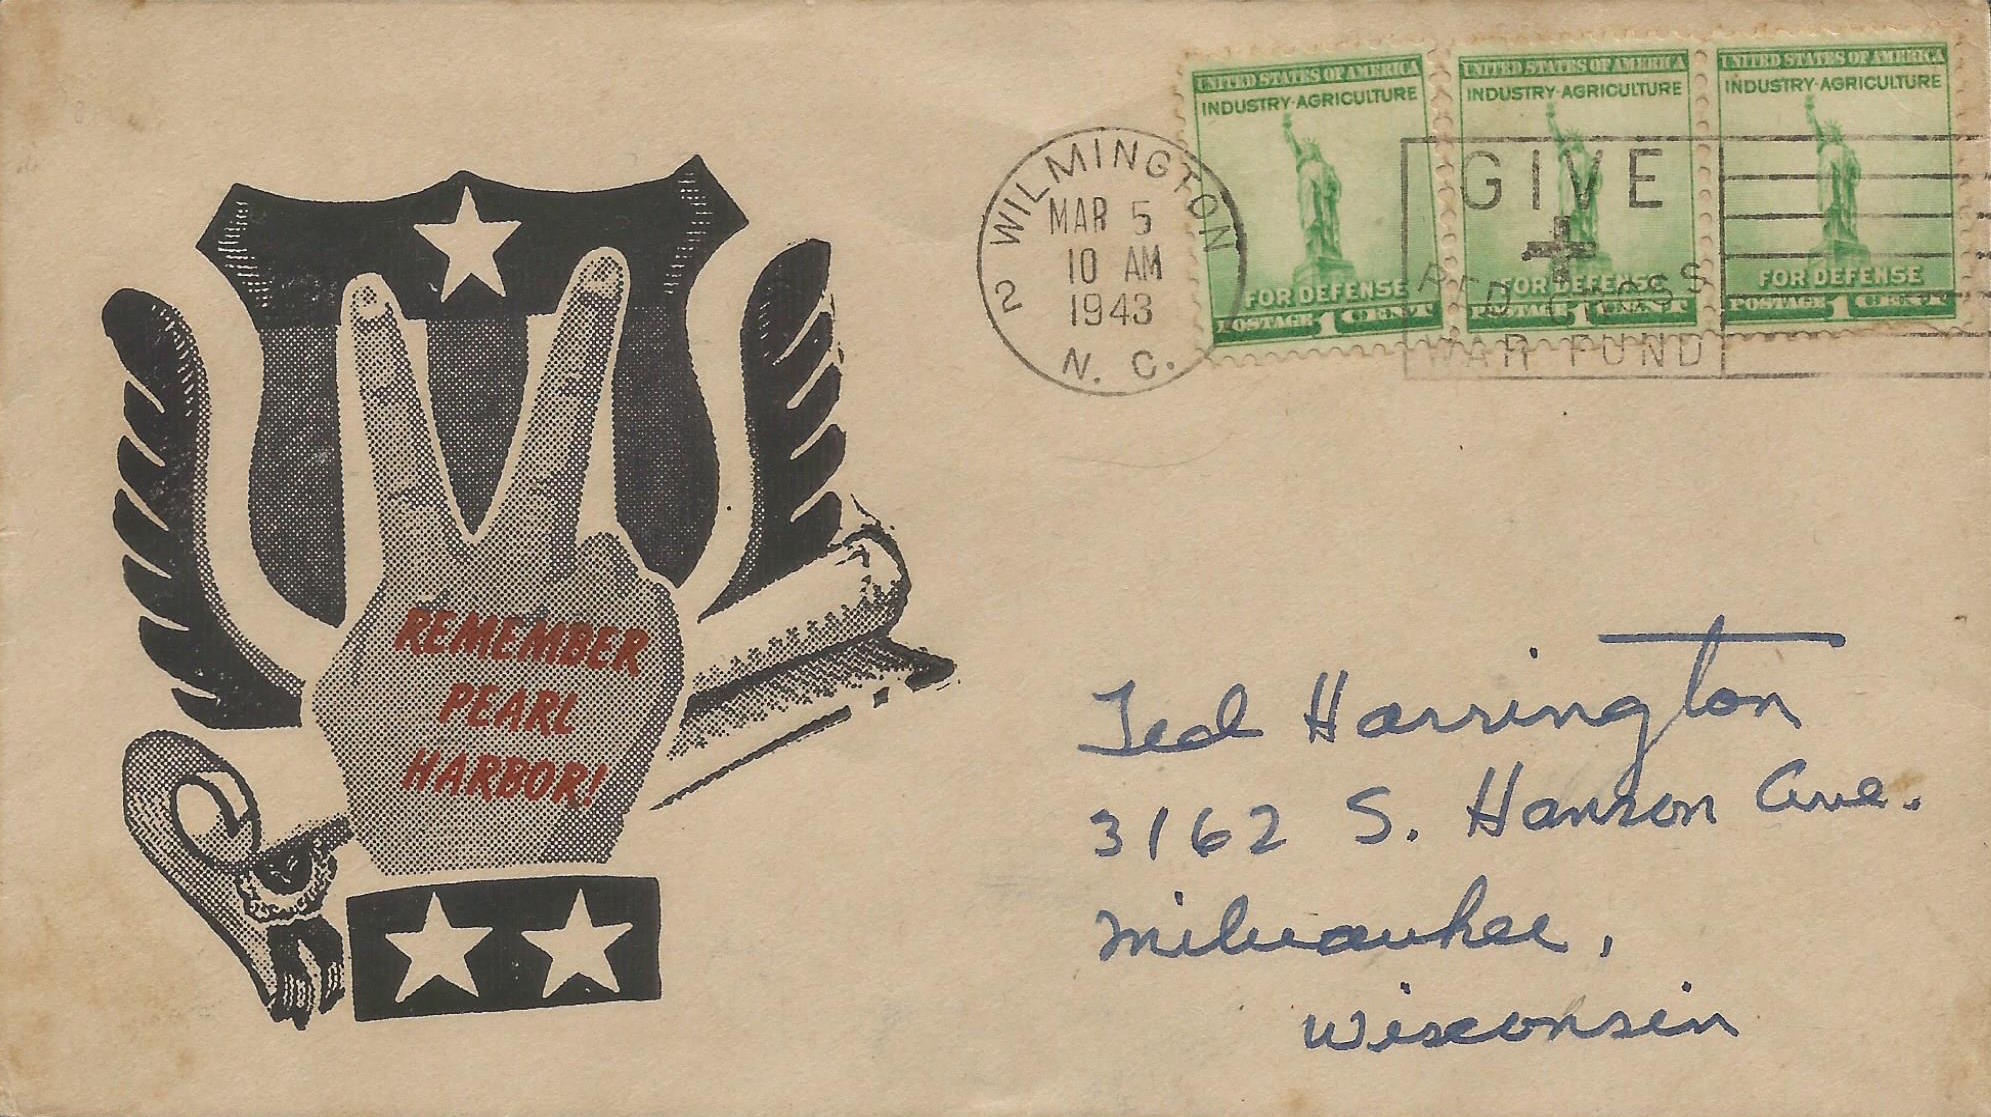 UNITED STATES OF AMERICA
INDUSTRY-AGRICULTURE
FOR DEFENSE
POSTAGE 1 CENT
UNITED STATES OF AMERICA
INDUSTRY-AGRICULTURE
FOR DEFENSE
POSTAGE 1 CENT
UNITED STATES OF AMERICA
INDUSTRY-AGRICULTURE
FOR DEFENSE
POSTAGE 1 CENT
2 WILMINGTON
MAR 5
10 AM
1943
N. C.
GIVE
RED CROSS
WAR FUND
REMEMBER
PEARL
HARBOR!
Ted Harrington
3162 S. Hanson Ave.
Milwaukee,
Wisconsin